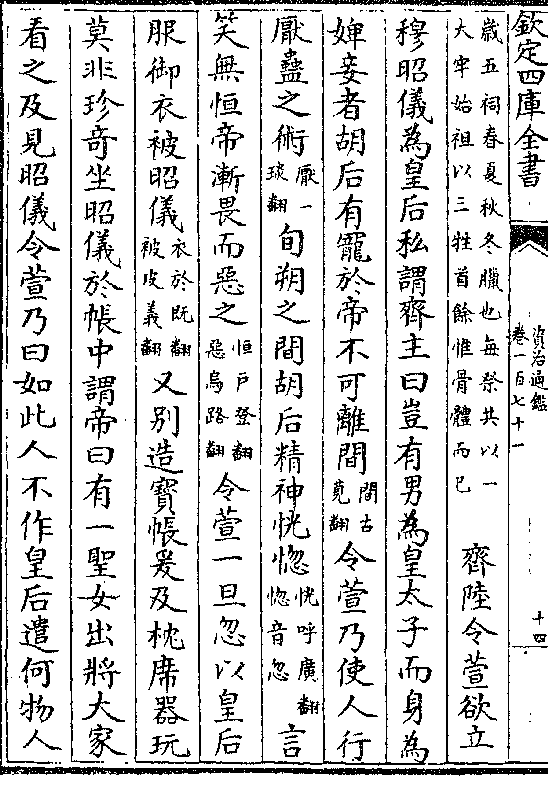 欽定四庫全書
資治通鑑
卷一百七十一
十四
歲五祠春夏秋冬臘也每祭共以一
大牢始祖以三牲首餘惟骨體而已
齊陸令萱欲立
穆昭儀為皇后私謂齊主曰豈有男為皇太子而身為
婢妾者胡后有寵於帝不可離間間古莧翻令萱乃使人行
厭蠱之術厭一琰翻旬朔之間胡后精神恍惚恍呼廣翻惚音忽言
笑無恒帝漸畏而惡之恒戶登翻惡烏路翻令萱一旦忽以皇后
服御衣被昭儀衣於既翻被皮義翻又別造寶帳爰及枕席器玩
莫非珍奇坐昭儀於帳中謂帝曰有一聖女出將大家
看之及見昭儀令萱乃曰如此人不作皇后遣何物人